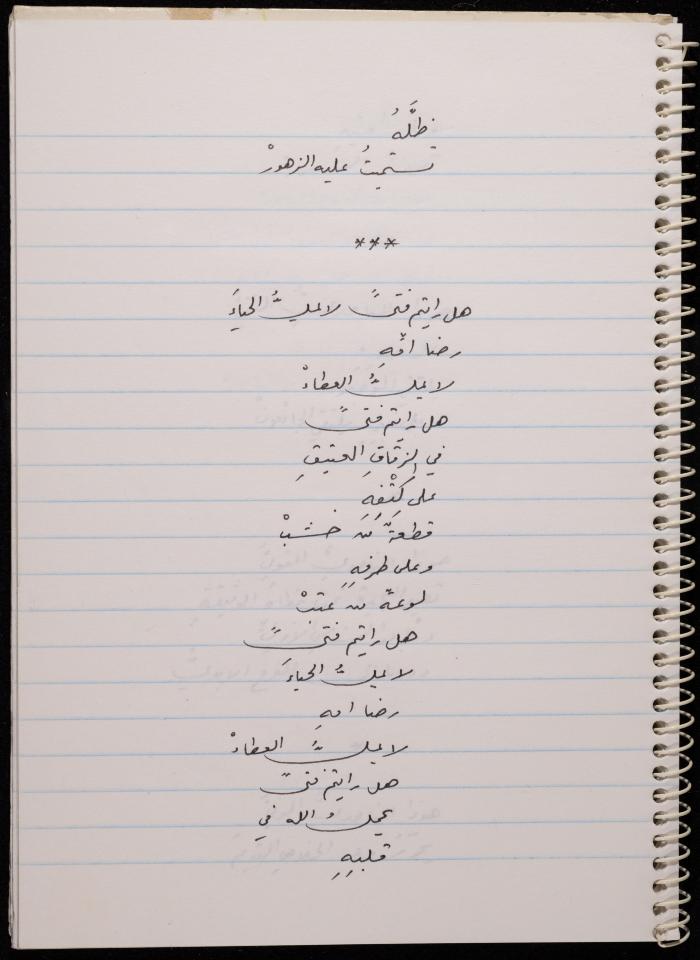 ظِلَّهُ
تستميتُ عليه الزهورْ
***
هل رايتم فتىً لا يملكُ الحياءَ
رضا امِّهِ
لا يملكُ العطاءْ
هل رايتم فتىً
في الزقاقِ العتيقِ
على كتْفِهِ
قطعةٌ مِنَ خشبْ
وعلى طرفِهِ
لوعةٌ من عتبْ
هل رايتم فتىً
لا يملكُ الحياءَ
رضا امهِ
لا يملكُ العطاءْ
هل رايتم فتىً
يحملُ الله في
قلبِهِ